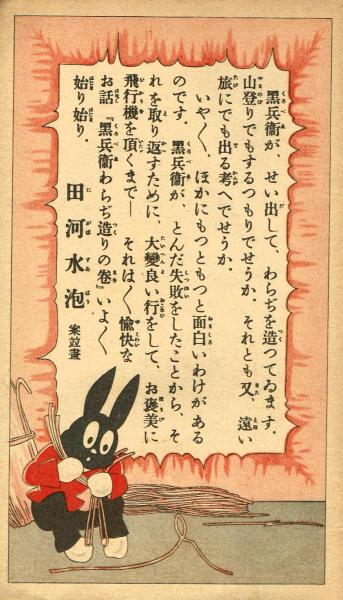 黑兵衞が、せい出して、わらぢを造つてゐます。
山登りでもするつもりでせうか。それとも又、遠い
旅にでも出る考へでせうか。
いや〱、ほかにもつともつと面白いわけがある
のです。黑兵衞が、とんだ失敗をしたことから、そ
れを取り返すために、大變良い行をして、お褒美に
飛行機を頂くまで―それは〱愉快な
お話『黑兵衞わらぢ造りの卷』いよ〱
始り始り。
田河水泡 案竝畫